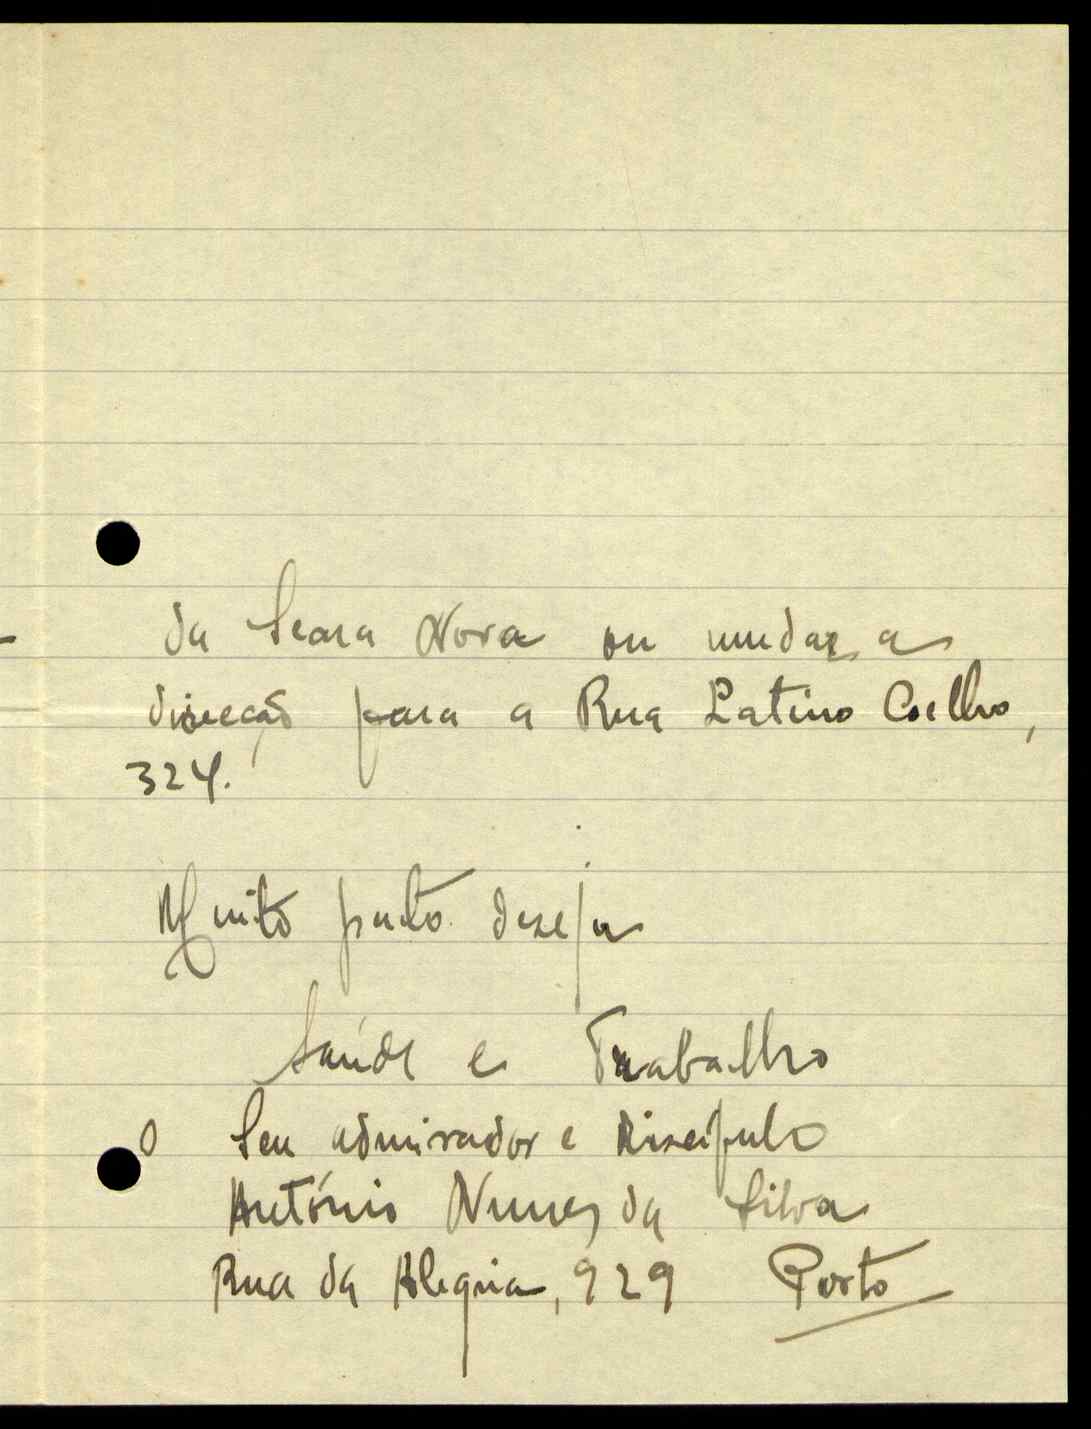 da Seara Nova ou mudar a
direcção para a Rua Latino Coelho,
324.
Muito grato deseja
Saúde e Trabalho
O Seu admirador e Discípulo
António Nunes da Silva
Rua da Alegria, 929 Porto